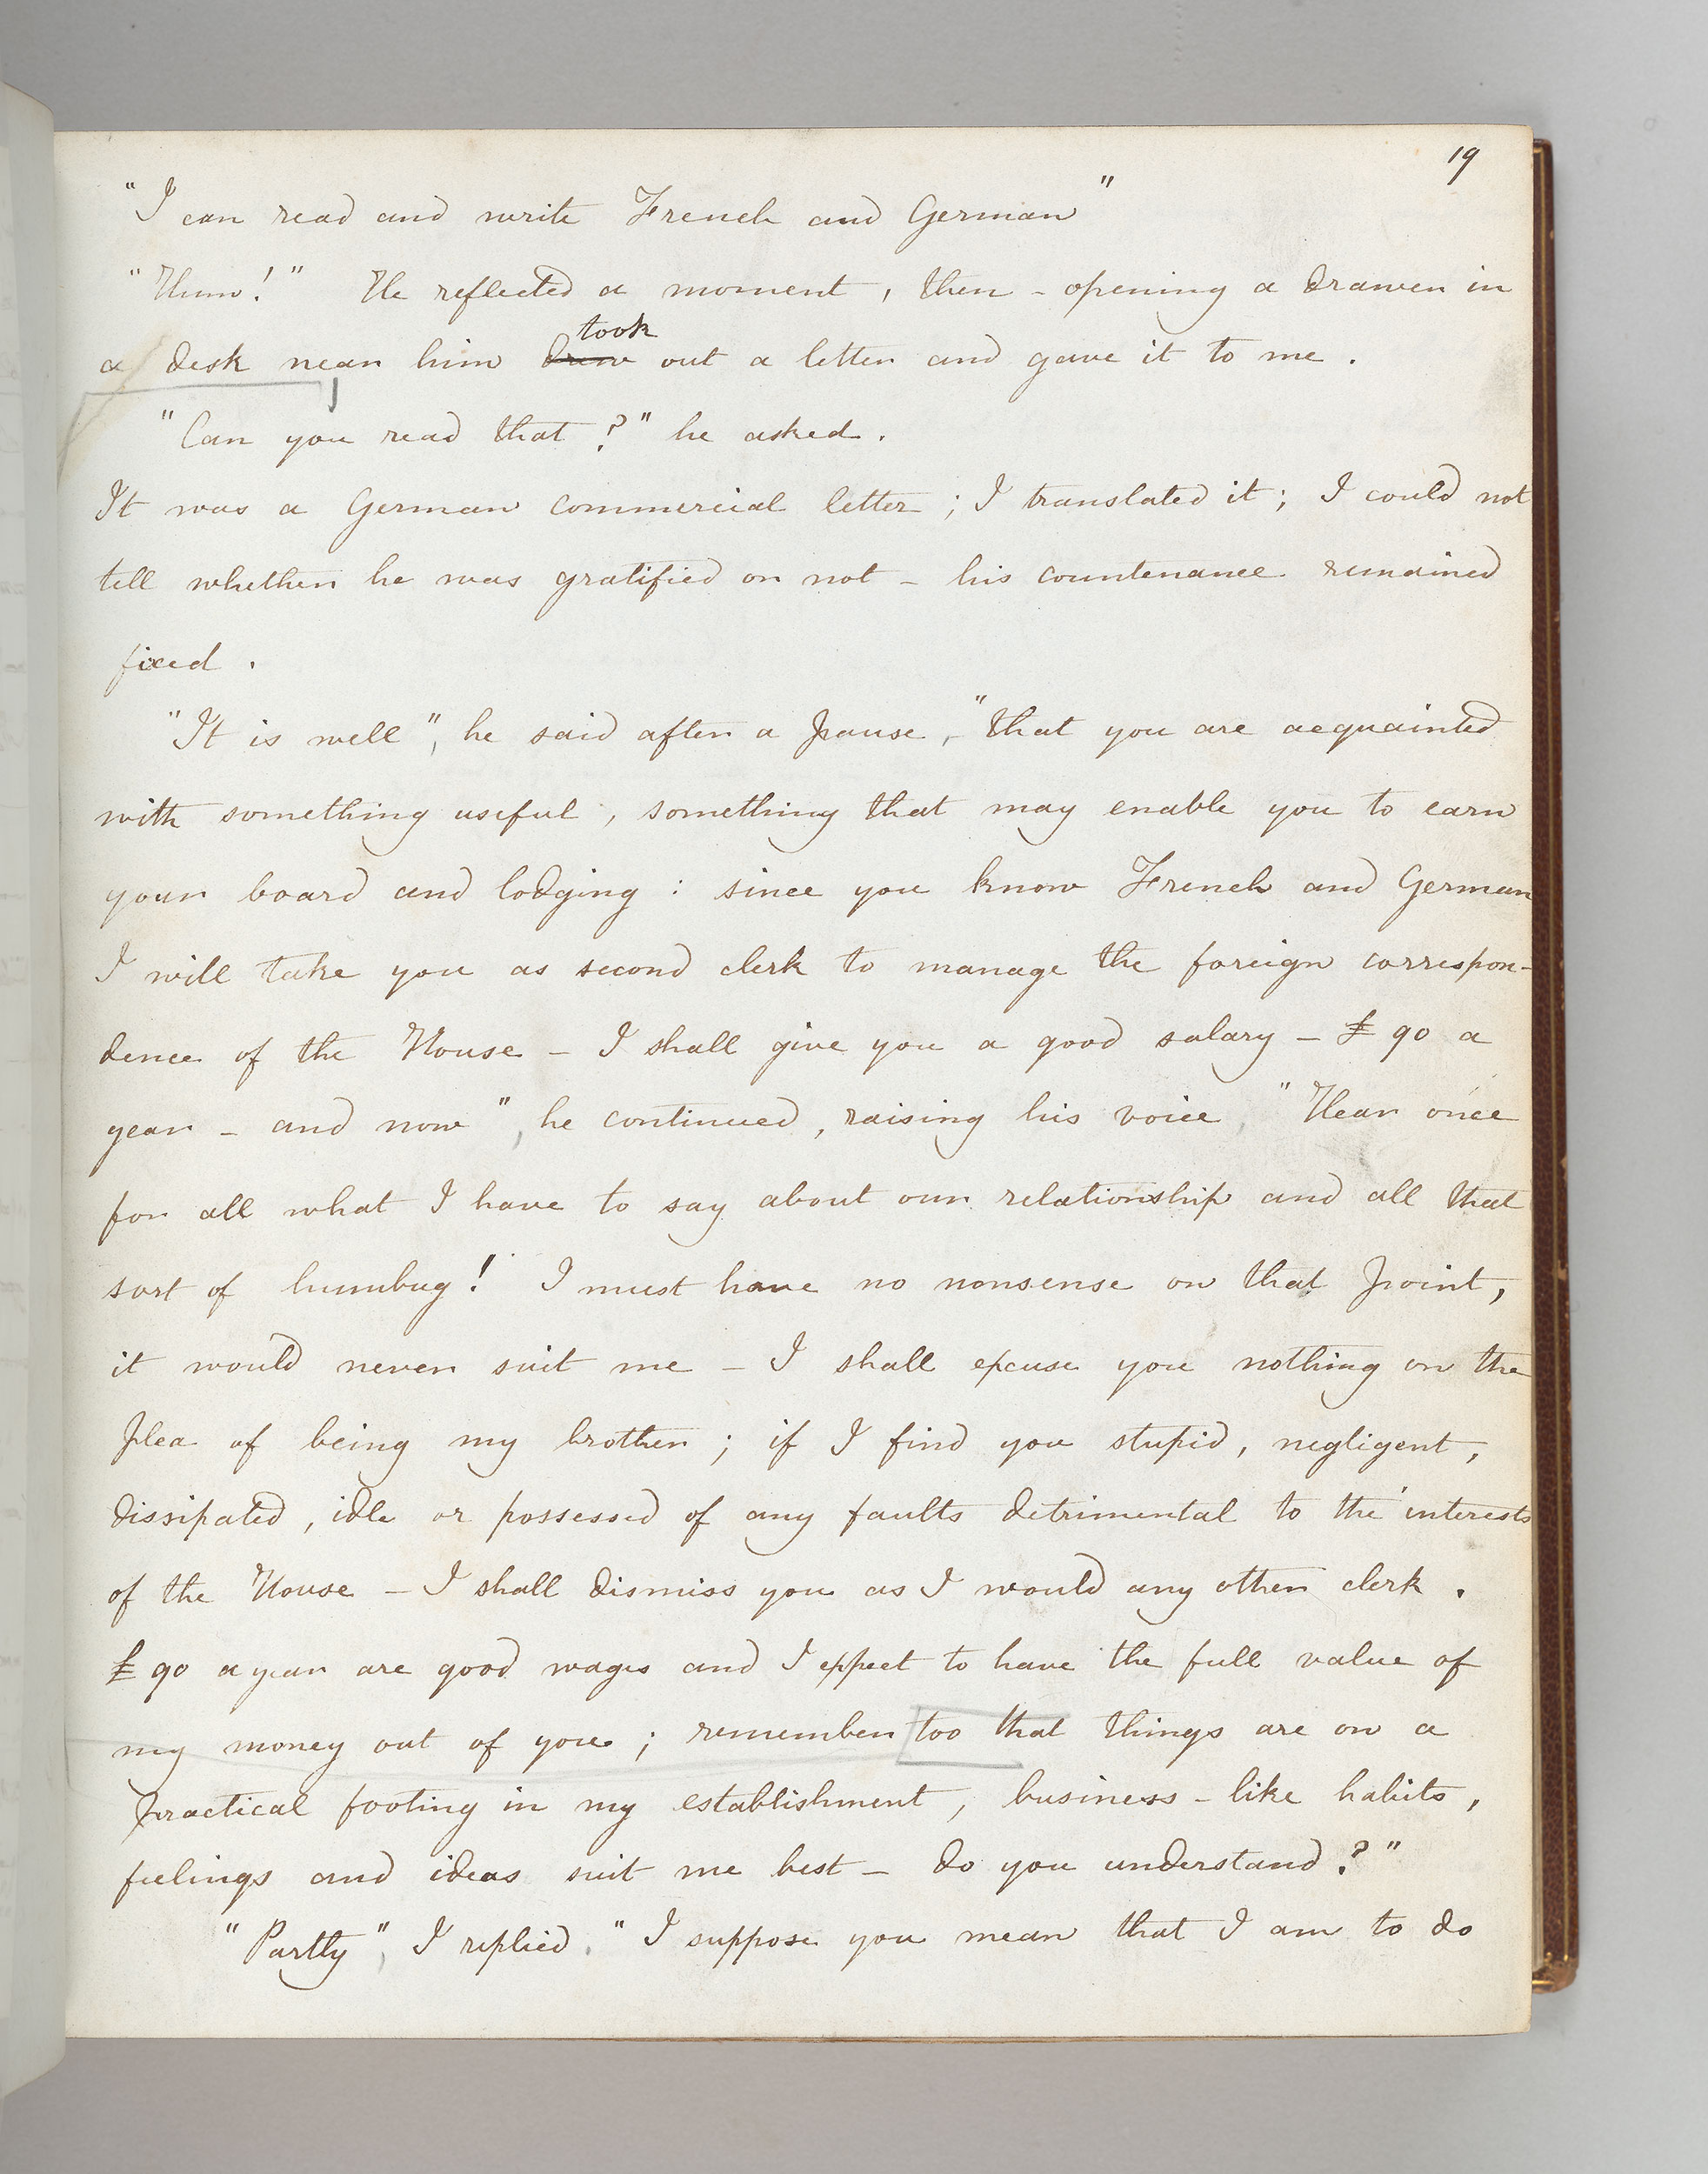 19
"I can read and write French and German"
"Hum!" He reflected a moment, then - opening a drawer in
took
a desk near him drew out a letter and gave it to me.
"Can you read that?" he asked.
It was a German commercial letter; I translated it; I could not
tell whether he was gratified or not - his countenance remained
fixed.
"It is well", he said after a pause, "that you are acquainted
with something useful, something that may enable you to earn
your board and lodging: since you know French and German
I will take you as second clerk to manage the foreign correspon-
dence of the House - I shall give you a good salary - £ 90 a
year - and now", he continued, raising his voice, "Hear once
for all what I have to say about our relationship and all that
sort of humbug! I must have no nonsense on that point,
it would never suit me - I shall excuse you nothing on the
plea of being my brother; if I find you stupid, negligent,
dissipated, idle or possessed of any faults detrimental to the interests
of the House - I shall dismiss you as I would any other clerk.
£ 90 a year are good wages and I expect to have the full value of
my money out of you; remember too that things are on a
practical footing in my establishment, business-like habits,
feelings and ideas suit me best - do you understand?"
"Partly", I replied. "I suppose you mean that I am to do